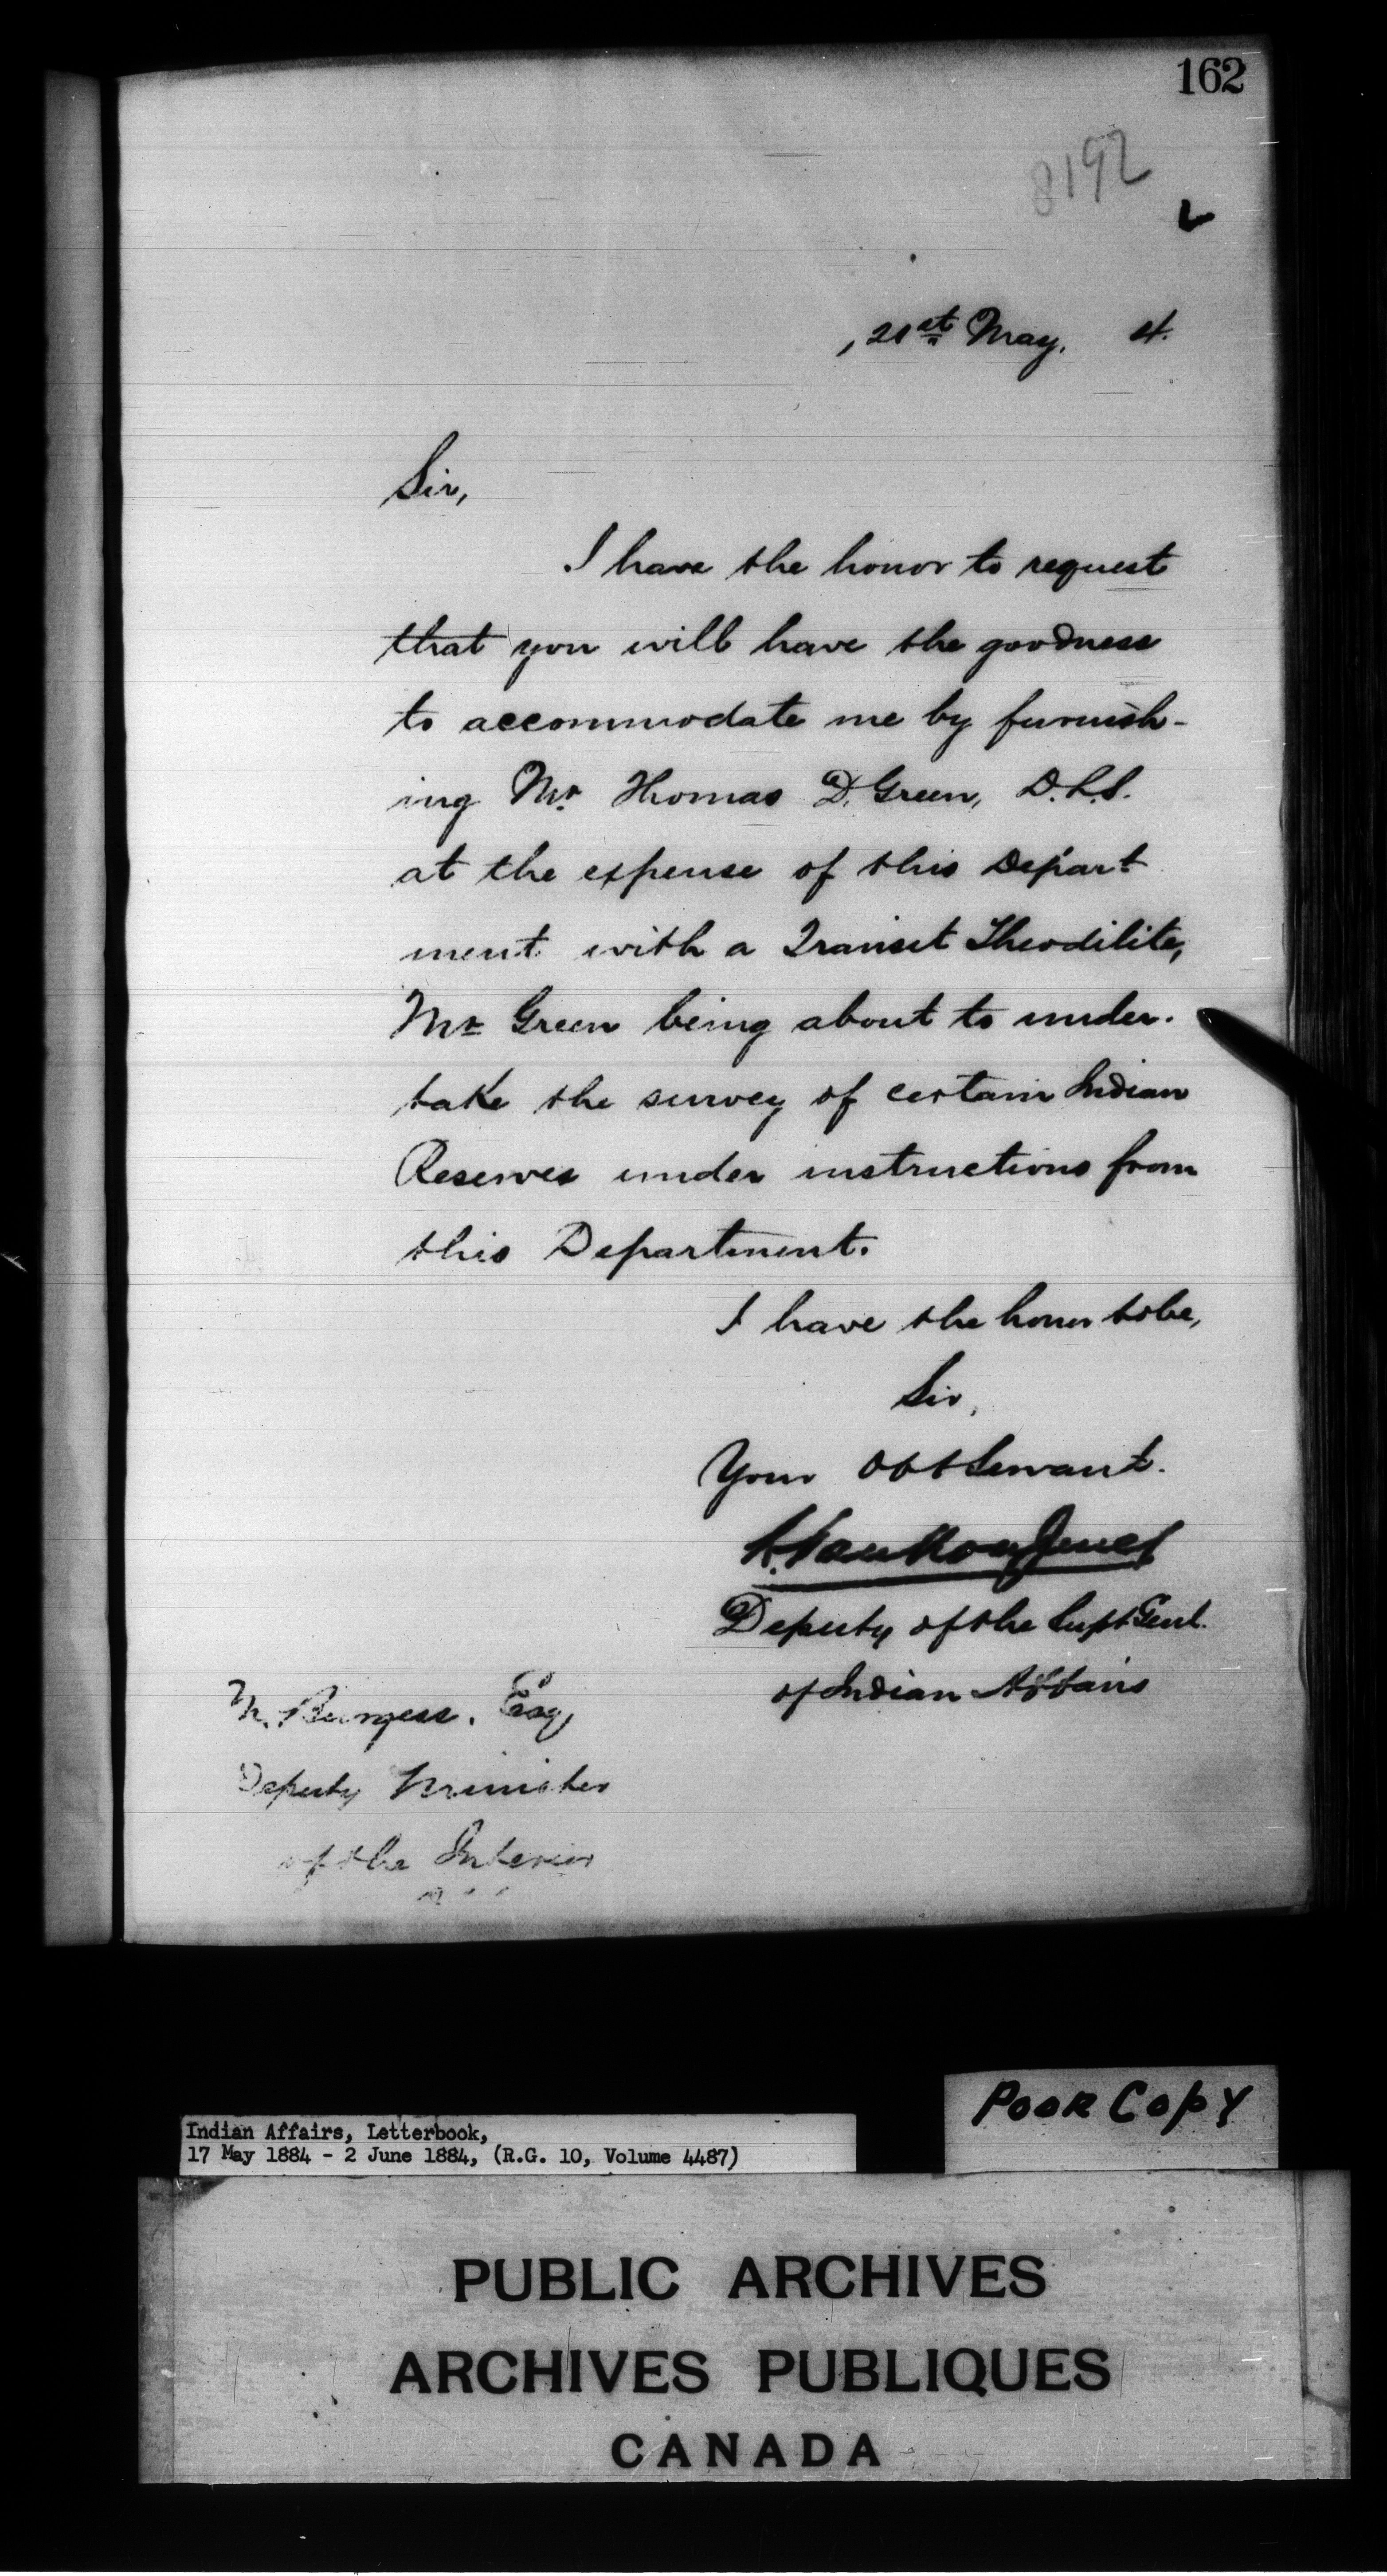 162
8192
, 21st May. 4.
Sir,
I have the honor to request
that you will have the goodness
to accommodate me by furnish-
ing Mr. Thomas D. Green, D.L.S.
at the expense of this Depart
ment with a Transit Theodilite,
Mr Green being about to under-
take the survey of certain Indian
Reserves under instructions from
this Department.
I have the honor to be,
Sir,
Your Obt Servant.
L. Vankoughnet
Deputy of the Supt Genl.
of Indian Affairs
Burgess. Esq
Deputy Minister
of the Interior
Poor Copy
Indian Affairs, Letterbook,
17 May 1884 - 2 June 1884, (R.G. 10, Volume 4487)
PUBLIC ARCHIVES
ARCHIVES PUBLIQUES
CANADA